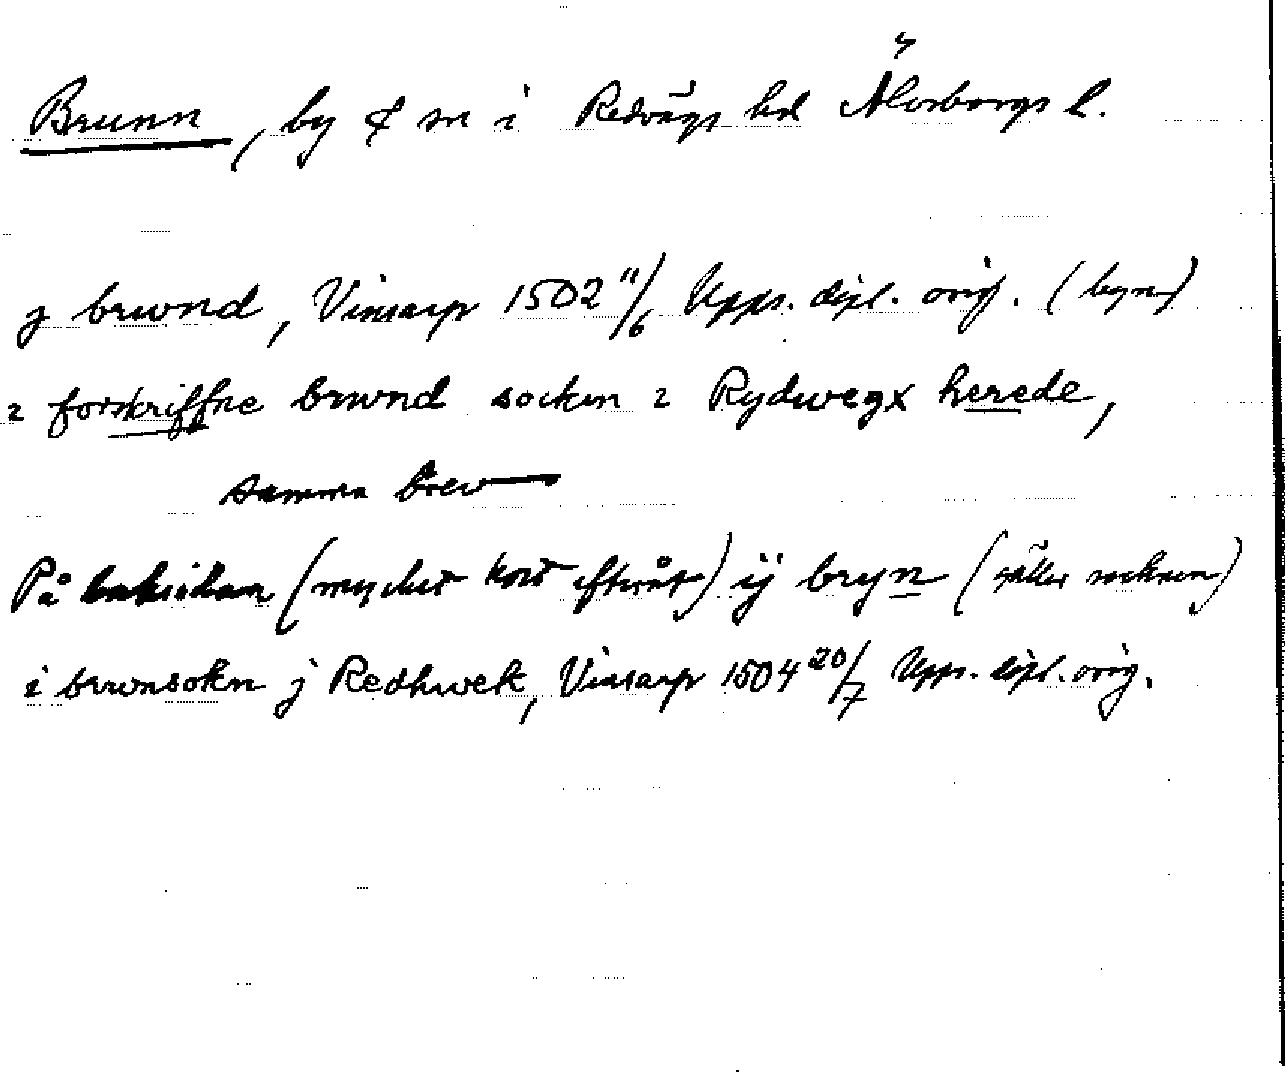 Brunn, by & sn i Redvägs hd Älvsborgs l.
j brwnd, Vinsarp 1502 11/6 Upps. dipl. orig. (byn)
i forskriffne brwnd socken i Rydwegx herede,
samma brev
På baksidan (mycket kort efteråt) ij bryn (gäller socknen)
i brwnsokn j Redhwek, Vinsarp 1504 20/7 Upps. dipl. orig.